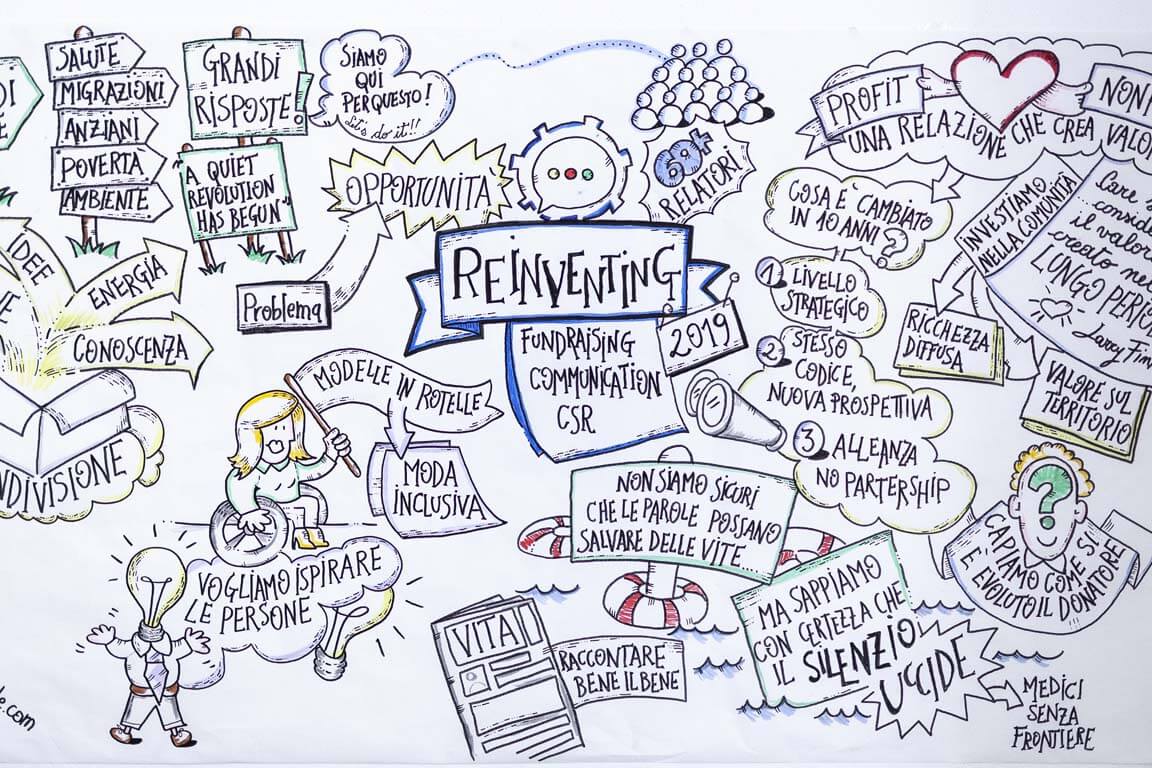 SALUTE
MIGRAZIONI
ANZIANI
POVERTA
AMBIENTE
GRANDI
RISPOSTE!
"A QUIET
REVOLUTION
HAS BEGUN"
SIAMO
QUI
PER QUESTO!
Let's do it!!
OPPORTUNITA
Problema
IDEE
ENERGIA
CONOSCENZA
NDIVISIONE
MODELLE IN ROTELLE
MODA
INCLUSIVA
VOGLIAMO ISPIRARE
LE PERSONE
REINVENTING
2019
FUNDRAISING
COMMUNICATION
CSR
RELATORI
PROFIT
NON
UNA RELAZIONE CHE CREA VALO
COSA E' CAMBIATO
IN 10 ANNI?
1 LIVELLO
STRATEGICO
2 STESSO
CODICE,
NUOVA PROSPETTIVA
3 ALLEANZA
NO PARTERSHIP
INVESTIAMO
NELLA COMUNITÀ
Care
consid
il valor
creato ne
LUNGO PERIO
Larry Fin
RICCHEZZA
DIFFUSA
VALORE SUL
TERRITORIO
?
CAPIAMO COME SI
E' EVOLUTO IL DONATORE
NON SIAMO SICURI
CHE LE PAROLE POSSANO
SALVARE DELLE VITE...
MA SAPPIAMO
CON CERTEZZA CHE
IL SILENZIO
UCCIDE
MEDICI
SENZA
FRONTIERE
VITA
RACCONTARE
BENE IL BENE
e.com